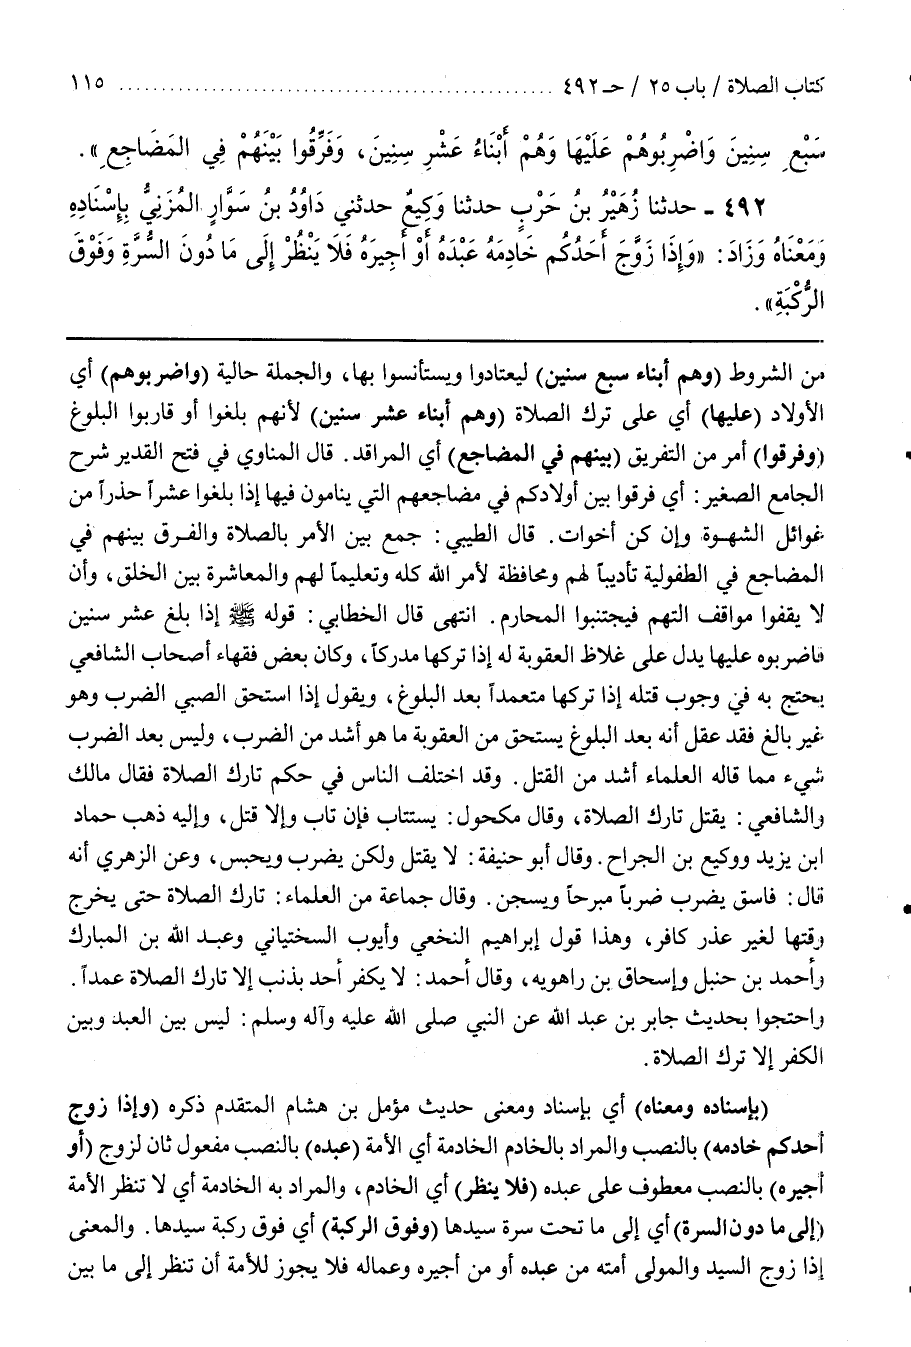 كتاب الصلاة / باب ٢٥ / حـ ٤٩٢ ................................................... ١١٥
سَبْعِ سِنِينَ وَاضْرِبُوهُمْ عَلَيْهَا وَهُمْ أَبْنَاءُ عَشْرِ سِنِينَ، وَفَرِّقُوا بَيْنَهُمْ فِي المَضَاجِعِ».
٤٩٢ - حدثنا زُهَيْرُ بنُ حَرْبٍ حدثنا وَكِيعٌ حدثني دَاوُدُ بنُ سَوَّارٍ المُزَنِيُّ بِإِسْنَادِهِ
وَمَعْنَاهُ وَزَادَ: «وَإِذَا زَوَّجَ أَحَدُكُم خَادِمَهُ عَبْدَهُ أَوْ أَجِيرَهُ فَلَا يَنْظُرْ إِلَى مَا دُونَ السُّرَّةِ وَفَوْقَ
الرُّكْبَةِ».
من الشروط (وهم أبناء سبع سنين) ليعتادوا ويستأنسوا بها، والجملة حالية (واضربوهم) أي
الأولاد (عليها) أي على ترك الصلاة (وهم أبناء عشر سنين) لأنهم بلغوا أو قاربوا البلوغ
(وفرقوا) أمر من التفريق (بينهم في المضاجع) أي المراقد. قال المناوي في فتح القدير شرح
الجامع الصغير: أي فرقوا بين أولادكم في مضاجعهم التي ينامون فيها إذا بلغوا عشراً حذراً من
غوائل الشهوة وإن كن أخوات. قال الطيبي: جمع بين الأمر بالصلاة والفرق بينهم في
المضاجع في الطفولية تأديباً لهم ومحافظة لأمر الله كله وتعليماً لهم والمعاشرة بين الخلق، وأن
لا يقفوا مواقف التهم فيجتنبوا المحارم. انتهى قال الخطابي: قوله ﷺ إذا بلغ عشر سنين
فاضربوه عليها يدل على غلاظ العقوبة له إذا تركها مدركاً، وكان بعض فقهاء أصحاب الشافعي
يحتج به في وجوب قتله إذا تركها متعمداً بعد البلوغ، ويقول إذا استحق الصبي الضرب وهو
غير بالغ فقد عقل أنه بعد البلوغ يستحق من العقوبة ما هو أشد من الضرب، وليس بعد الضرب
شيء مما قاله العلماء أشد من القتل. وقد اختلف الناس في حكم تارك الصلاة فقال مالك
والشافعي: يقتل تارك الصلاة، وقال مكحول: يستتاب فإن تاب وإلا قتل، وإليه ذهب حماد
ابن يزيد ووكيع بن الجراح. وقال أبو حنيفة: لا يقتل ولكن يضرب ويحبس، وعن الزهري أنه
قال: فاسق يضرب ضرباً مبرحاً ويسجن. وقال جماعة من العلماء: تارك الصلاة حتى يخرج
وقتها لغير عذر كافر، وهذا قول إبراهيم النخعي وأيوب السختياني وعبد الله بن المبارك
وأحمد بن حنبل وإسحاق بن راهويه، وقال أحمد: لا يكفر أحد بذنب إلا تارك الصلاة عمداً.
واحتجوا بحديث جابر بن عبد الله عن النبي صلى الله عليه وآله وسلم: ليس بين العبد وبين
الكفر إلا ترك الصلاة.
(بإسناده ومعناه) أي بإسناد ومعنى حديث مؤمل بن هشام المتقدم ذكره (وإذا زوج
أحدكم خادمه) بالنصب والمراد بالخادم الخادمة أي الأمة (عبده) بالنصب مفعول ثان لزوج (أو
أجيره) بالنصب معطوف على عبده (فلا ينظر) أي الخادم، والمراد به الخادمة أي لا تنظر الأمة
(إلى ما دون السرة) أي إلى ما تحت سرة سيدها (وفوق الركبة) أي فوق ركبة سيدها. والمعنى
إذا زوج السيد والمولى أمته من عبده أو من أجيره وعماله فلا يجوز للأمة أن تنظر إلى ما بين